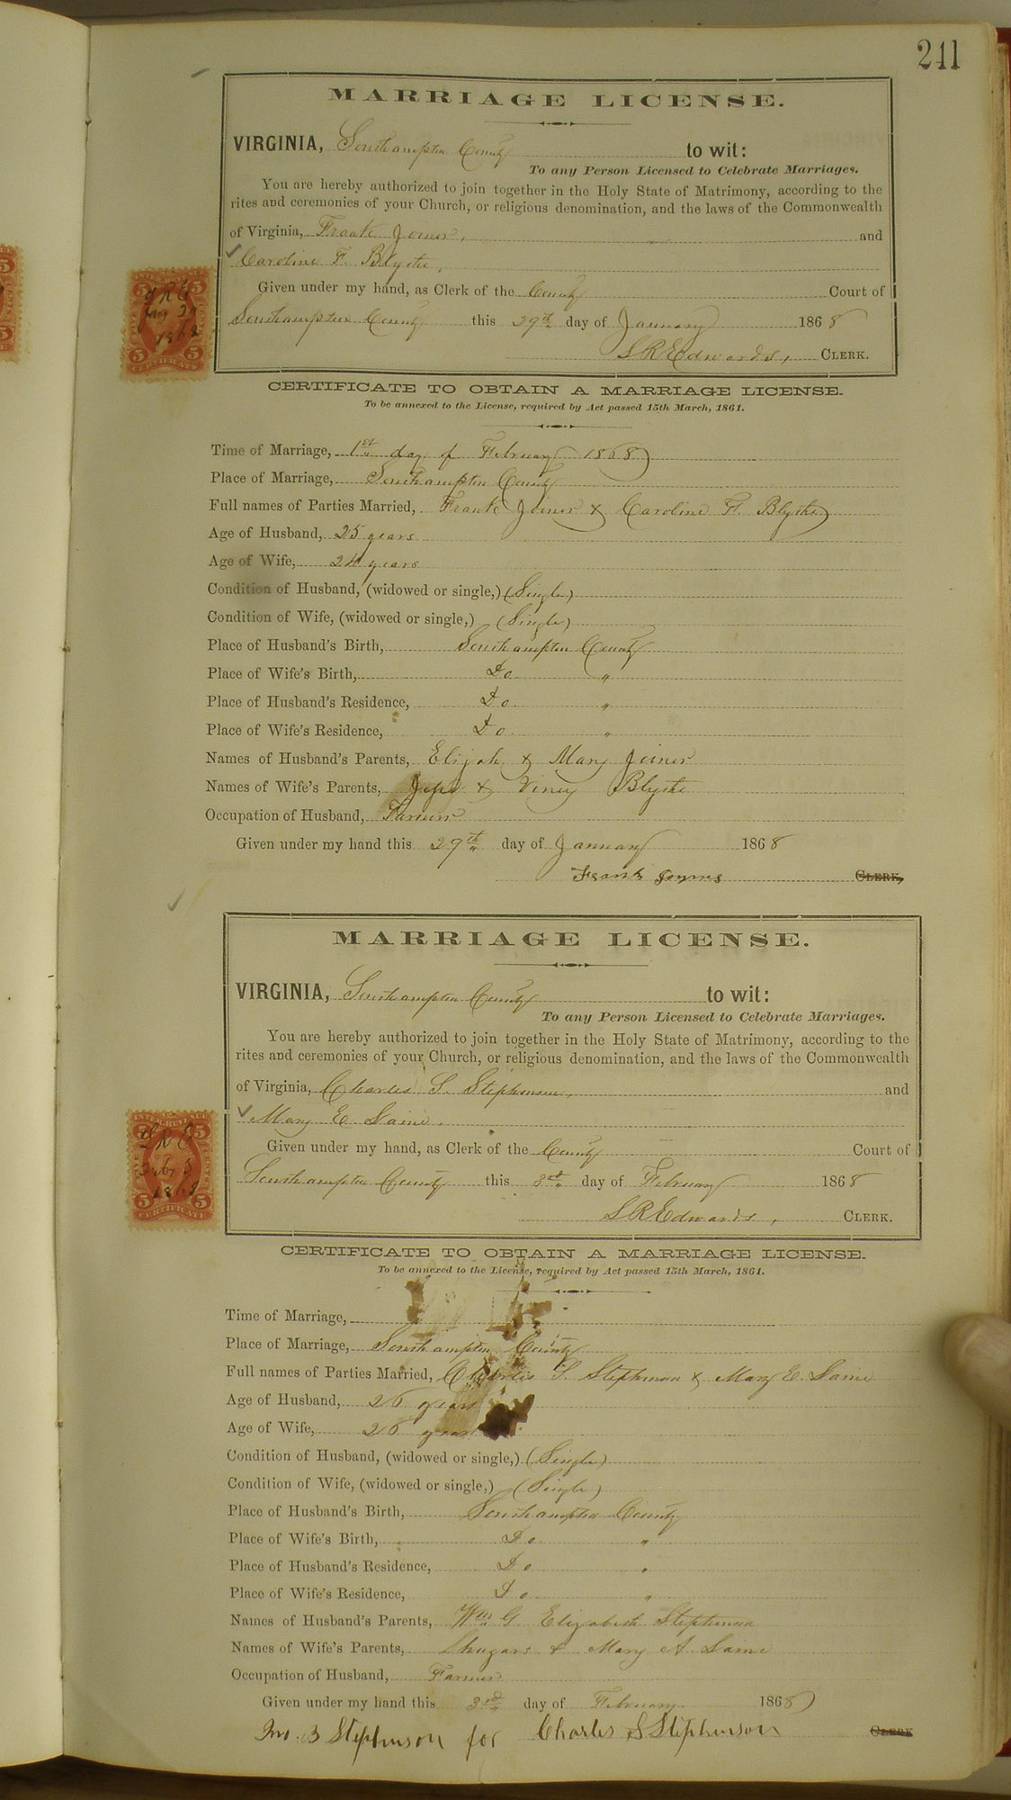 241
MARRIAGE LICENSE.
VIRGINIA, Southampton County to wit:
To any Person Licensed to Celebrate Marriages.
You are hereby authorized to join together in the Holy State of Matrimony, according to the
rites and ceremonies of your Church, or religious denomination, and the laws of the Commonwealth
of Virginia, Frank Joiner, and
Caroline F. Blythe,
Given under my hand, as Clerk of the County Court of
Southampton County this 29th day of January 1868
L R Edwards, CLERK.
CERTIFICATE TO OBTAIN A MARRIAGE LICENSE.
To be annexed to the License, required by Act passed 15th March, 1861.
Time of Marriage, 1st day of February 1868
Place of Marriage, Southampton County
Full names of Parties Married, Frank Joiner & Caroline F. Blythe
Age of Husband, 25 years
Age of Wife, 24 years
Condition of Husband, (widowed or single,) (Single)
Condition of Wife, (widowed or single,) (Single)
Place of Husband's Birth, Southampton County
Place of Wife's Birth, Do "
Place of Husband's Residence, Do "
Place of Wife's Residence, Do "
Names of Husband's Parents, Elijah & Mary Joiner
Names of Wife's Parents, & Viney Blythe
Occupation of Husband, Farmer
Given under my hand this 29th day of January 1868
Frank CLERK,
MARRIAGE LICENSE.
VIRGINIA, Southampton County to wit:
To any Person Licensed to Celebrate Marriages.
You are hereby authorized to join together in the Holy State of Matrimony, according to the
rites and ceremonies of your Church, or religious denomination, and the laws of the Commonwealth
of Virginia, Charles S. Stephenson, and
Mary E. Laine,
Given under my hand, as Clerk of the County Court of
Southampton County this 3rd day of February 1868
L R Edwards, CLERK.
CERTIFICATE TO OBTAIN A MARRIAGE LICENSE.
To be annexed to the License, required by Act passed 15th March, 1861.
Time of Marriage,
Place of Marriage, Southampton County
Full names of Parties Married, Charles S. Stephenson & Mary E. Laine
Age of Husband, 26 years
Age of Wife, 26 years
Condition of Husband, (widowed or single,) (Single)
Condition of Wife, (widowed or single,) (Single)
Place of Husband's Birth, Southampton County
Place of Wife's Birth, Do "
Place of Husband's Residence, Do "
Place of Wife's Residence, Do "
Names of Husband's Parents, Wm G Elizabeth Stephenson
Names of Wife's Parents, & Mary A Laine
Occupation of Husband, Farmer
Given under my hand this 3rd day of February 1868
Jno. B Stephenson for Charles S Stephenson CLERK